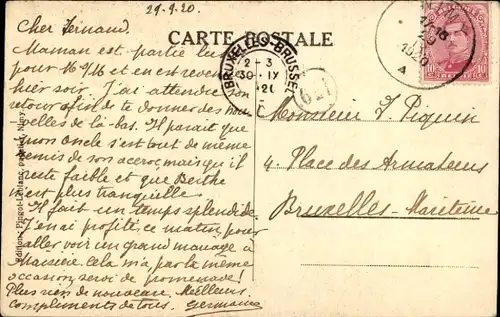 29.9.20.
CARTE POSTALE
Cher Fernand
Maman est partie lundi
pour M/M et en est revenue
hier soir. J'ai attendu son
retour afin de te donner des nou-
velles de là-bas. Il parait que
mon Oncle s'est tout de même
remis de son accroc, mais qu'il
reste faible et que Berthe
n'est plus tranquille.
Il fait un temps splendide.
J'en ai profité ce matin pour
aller voir un grand mariage à
Maisières. Cela m'a, par la même
occasion, servi de promenade!
Plus rien de nouveau. Meilleurs
compliments de tous. Germaine
BRUXELLES-BRUSSEL
2-3
30 IX
1920
621
1920
10 10
Monsieur F. Piquin
4. Place des Armateurs
Bruxelles-Maritime